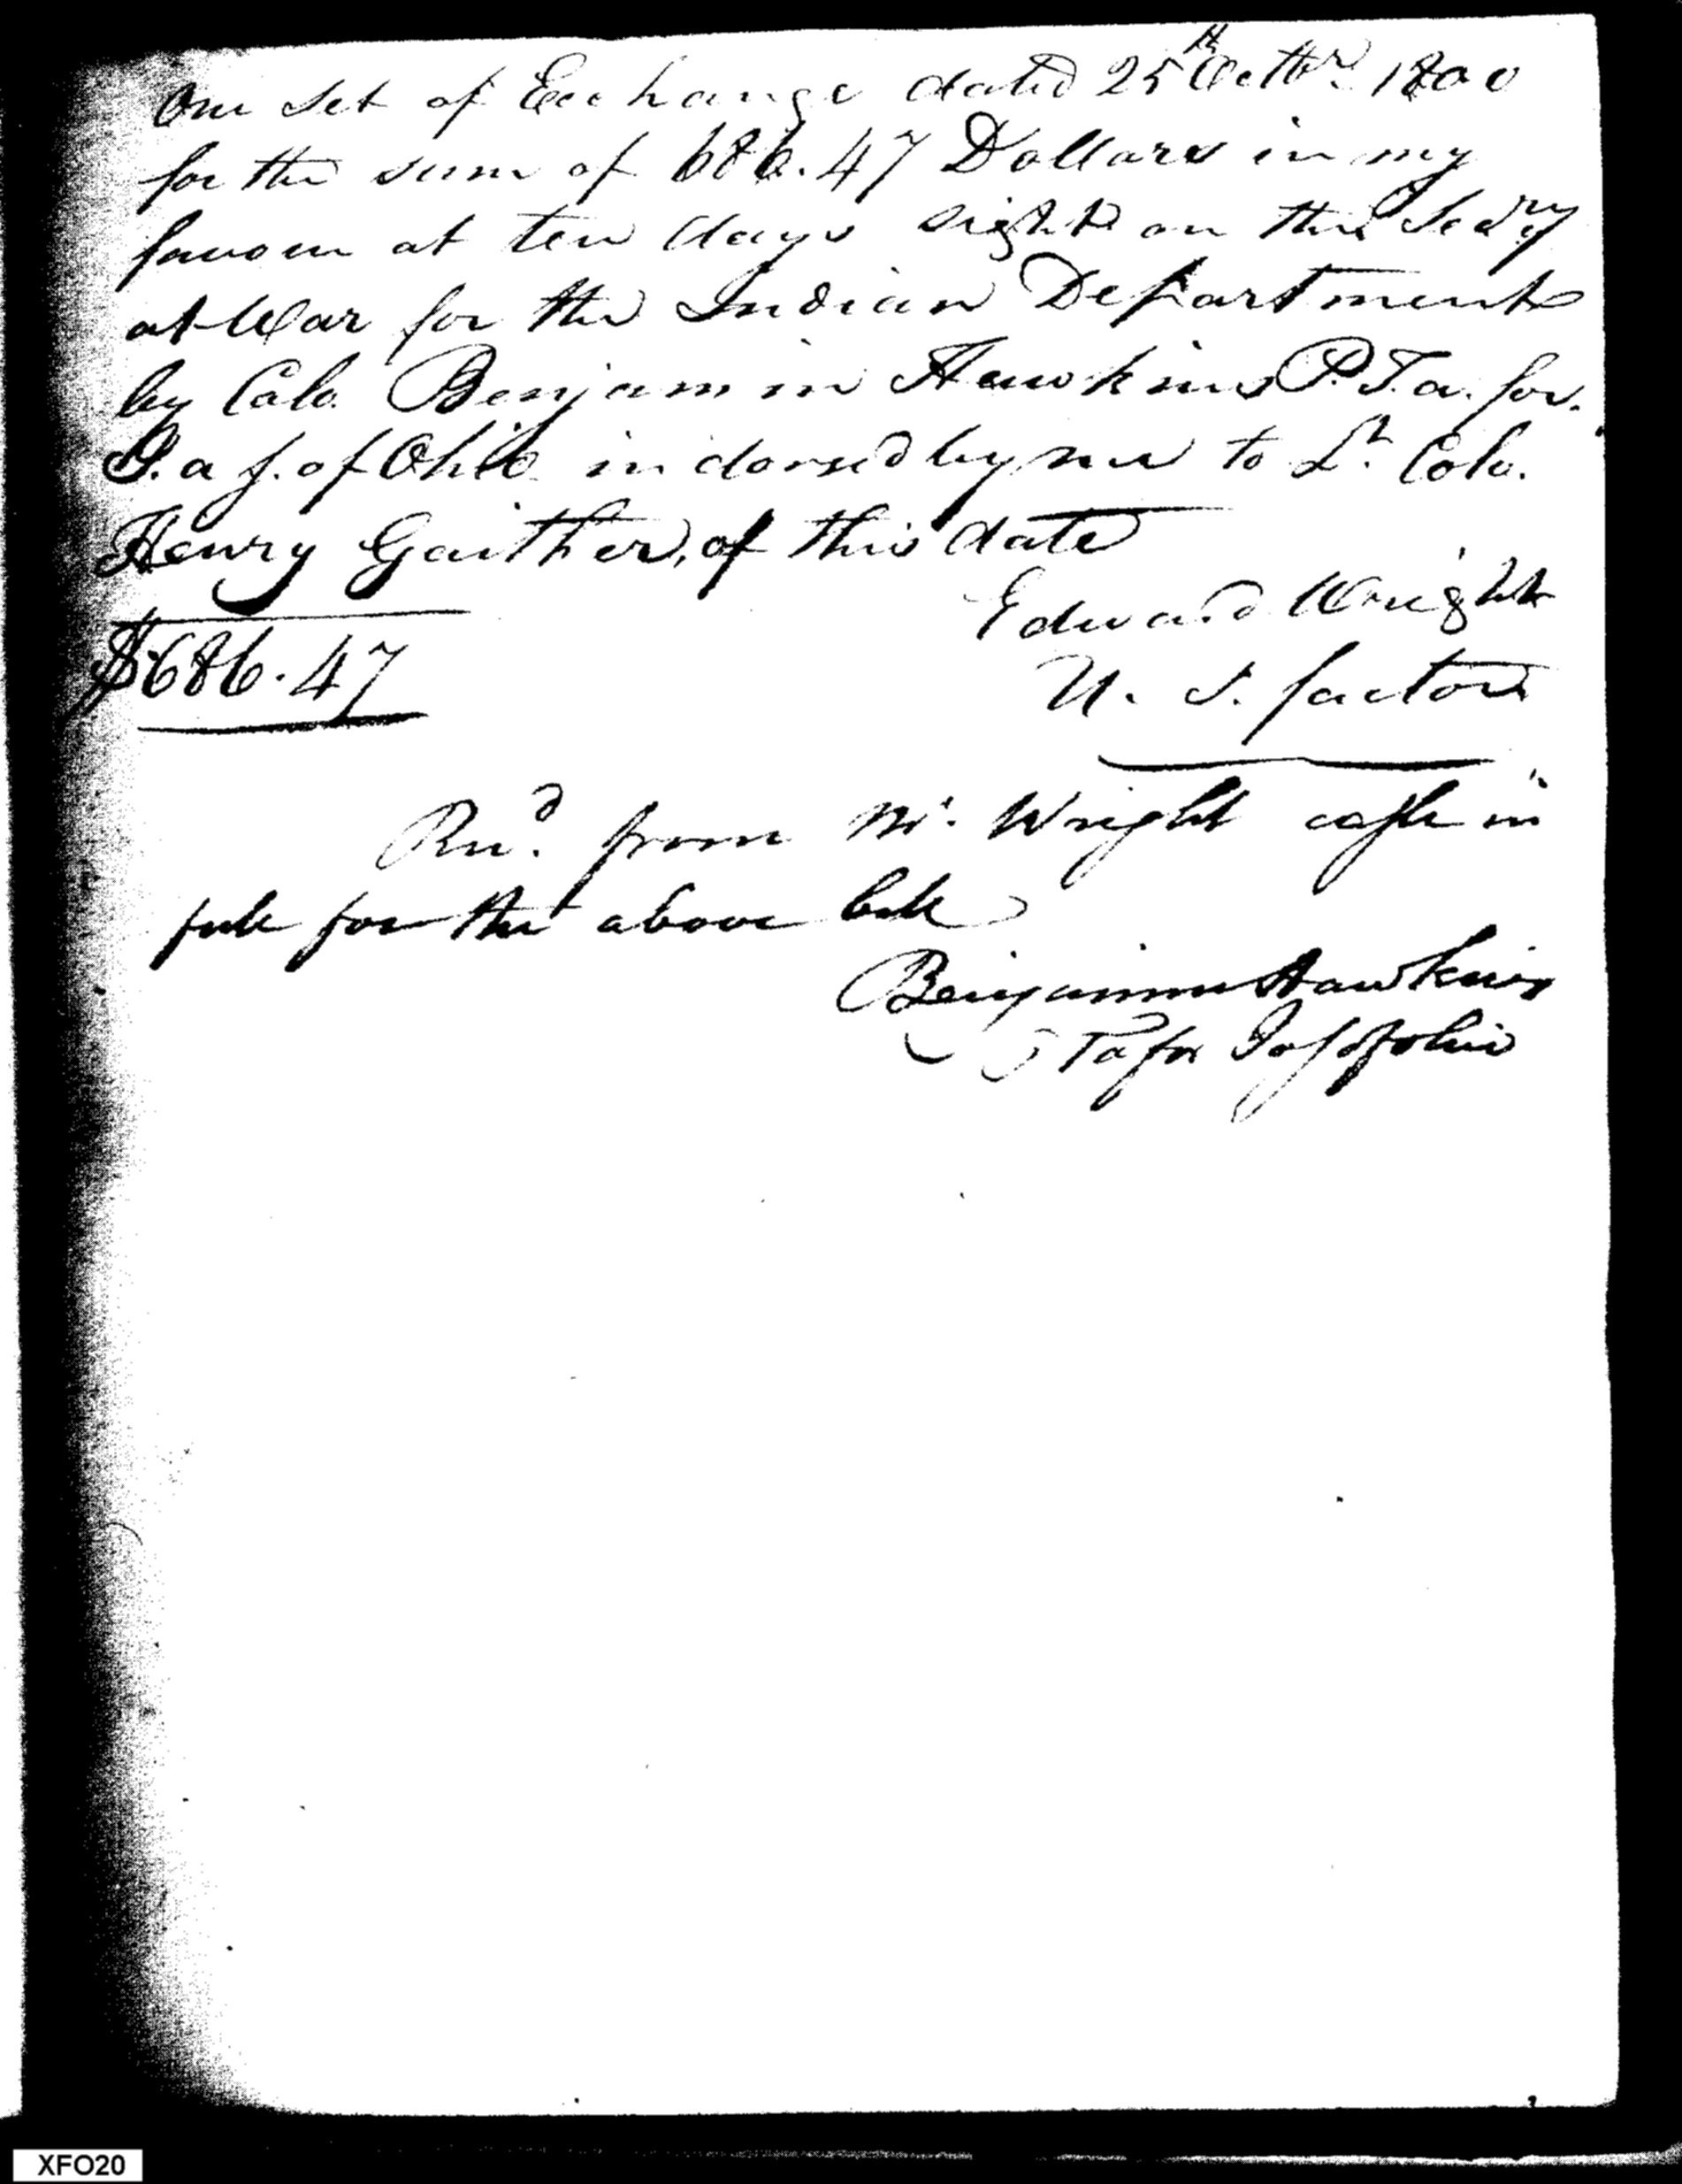 One set of Exchange dated 25th Octbr. 1800
for the sum of 686.47 Dollars in my
favour at ten days sight on the Secry
at War for the Indian Department
by Colo. Benjamin Hawkins P. T. a. for.
I. a f. of Ohio indorsed by me to Lt. Colo.
Henry Gaither, of this date
Edward Wright
$686.47
U. S. factor
Recd. from Mr. Wright cash in
full for the above bill
Benjamin Hawkins
P T a for I a f of Ohio
XFO20